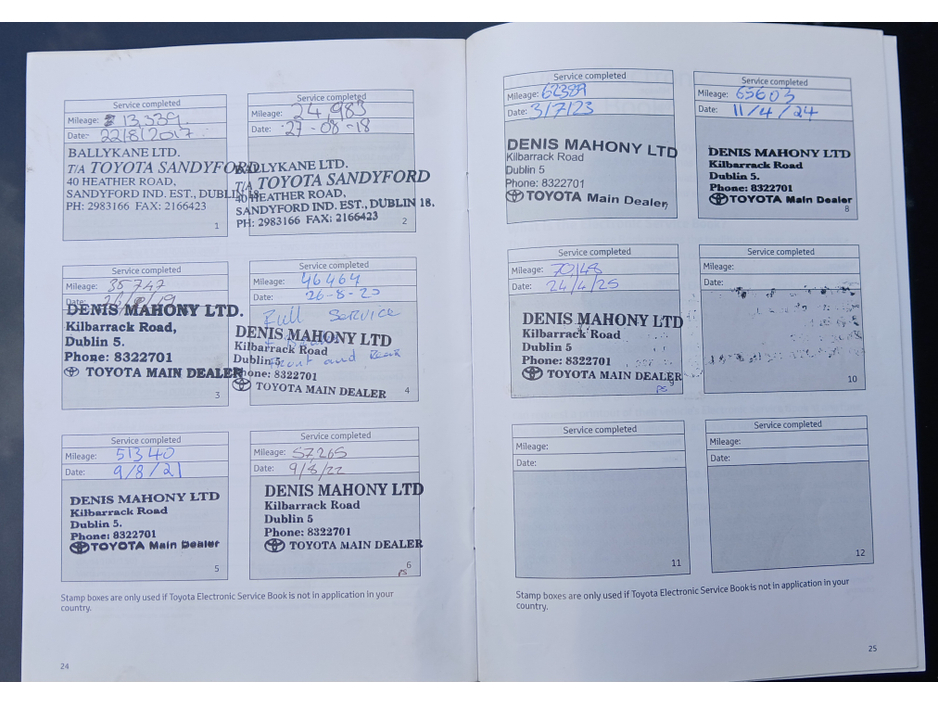 Service completed
Mileage: 13,339.
Date: 22/8/2017
BALLYKANE LTD.
T/A TOYOTA SANDYFORD
40 HEATHER ROAD,
SANDYFORD IND. EST., DUBLIN 18.
PH: 2983166 FAX: 2166423
1
Service completed
Mileage: 24,983
Date: 27-08-18
BALLYKANE LTD.
T/A TOYOTA SANDYFORD
40 HEATHER ROAD,
SANDYFORD IND. EST., DUBLIN 18.
PH: 2983166 FAX: 2166423
2
Service completed
Mileage: 35747
Date:
DENIS MAHONY LTD.
Kilbarrack Road,
Dublin 5.
Phone: 8322701
TOYOTA MAIN DEALER
3
Service completed
Mileage: 46464
Date: 26-8-20
Full Service
DENIS MAHONY LTD
Kilbarrack Road
Dublin 5
Front and Rear
Phone: 8322701
TOYOTA MAIN DEALER
4
Service completed
Mileage: 51340
Date: 9/8/21
DENIS MAHONY LTD
Kilbarrack Road
Dublin 5.
Phone: 8322701
TOYOTA Main Dealer
5
Service completed
Mileage: 57265
Date: 9/8/22
DENIS MAHONY LTD
Kilbarrack Road
Dublin 5
Phone: 8322701
TOYOTA MAIN DEALER
6
Stamp boxes are only used if Toyota Electronic Service Book is not in application in your
country.
24
Service completed
Mileage: 62389
Date: 3/7/23
DENIS MAHONY LTD
Kilbarrack Road
Dublin 5
Phone: 8322701
TOYOTA Main Dealer
Service completed
Mileage: 65603
Date: 11/4/24
DENIS MAHONY LTD
Kilbarrack Road
Dublin 5.
Phone: 8322701
TOYOTA Main Dealer
8
Service completed
Mileage: 70148
Date: 24/4/25
DENIS MAHONY LTD
Kilbarrack Road
Dublin 5
Phone: 8322701
TOYOTA MAIN DEALER
Service completed
Mileage:
Date:
10
Service completed
Mileage:
Date:
11
Service completed
Mileage:
Date:
12
Stamp boxes are only used if Toyota Electronic Service Book is not in application in your
country.
25